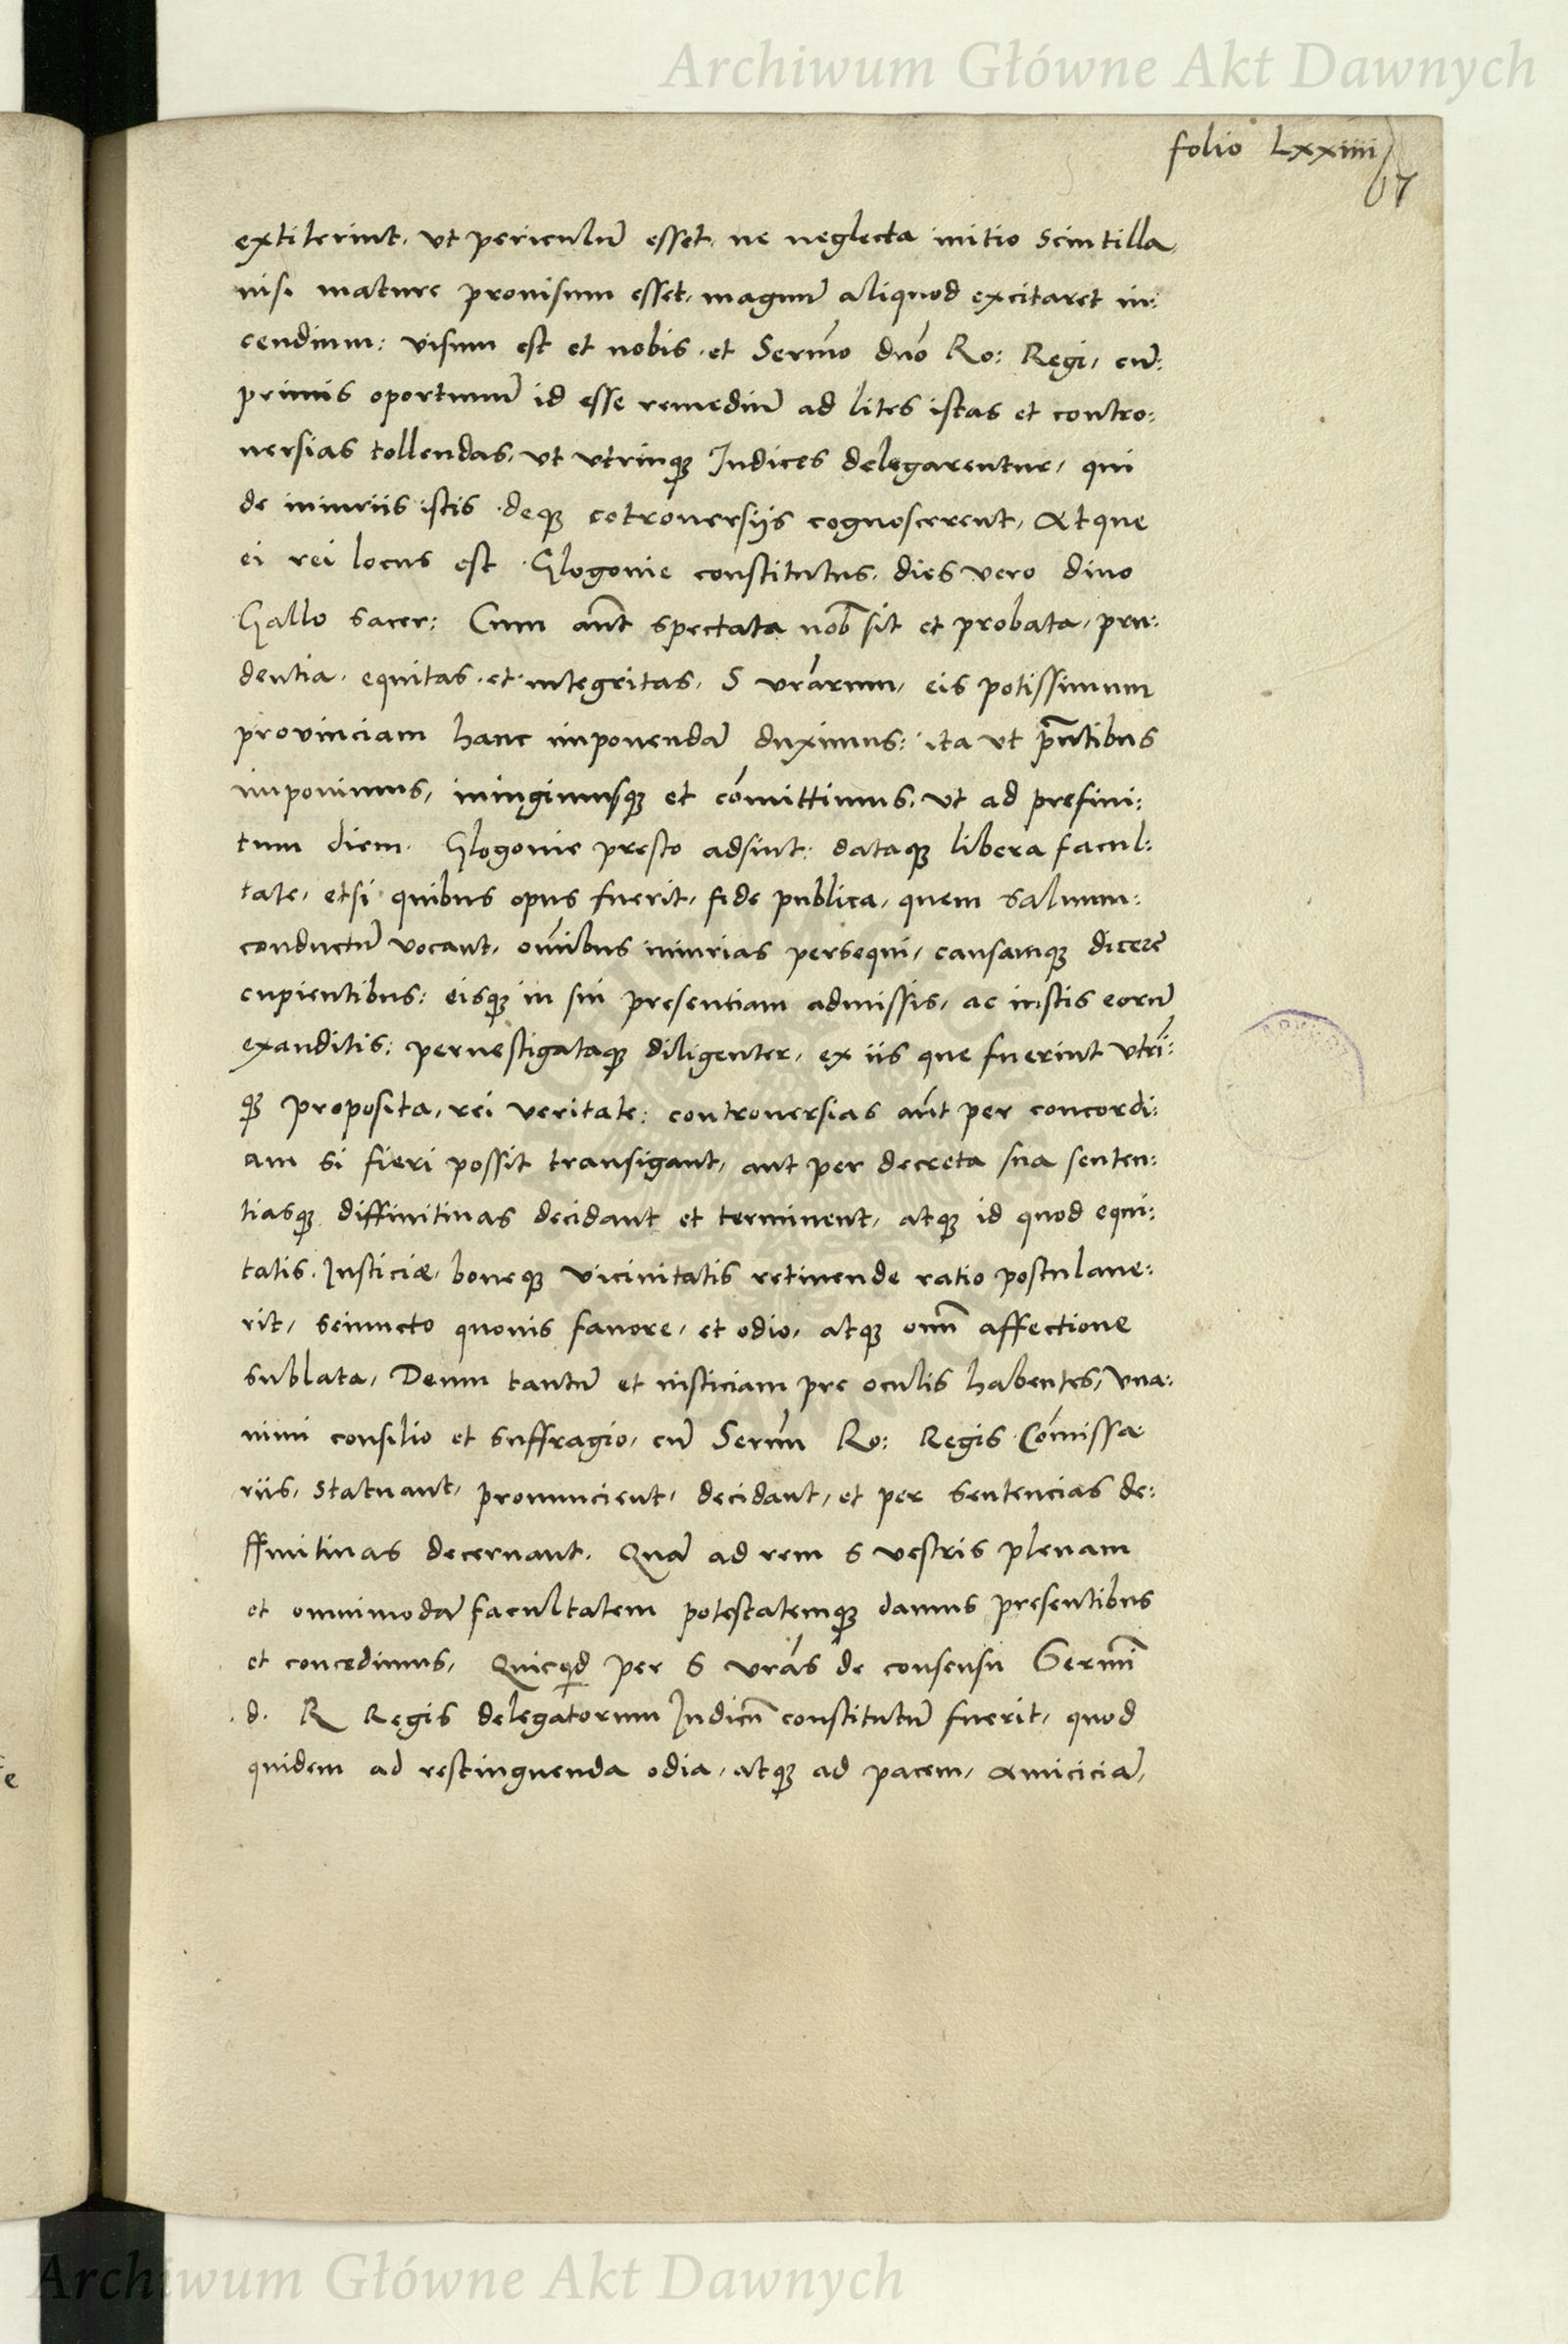 Archiwum Główne Akt Dawnych
folio Lxxiiii
67
extiterint, vt periculū esset, ne neglecta initio scintilla,
nisi mature prouisum esset, magnū aliquod excitaret in:
cendium: visum est et nobis, et Sermo dno Ro: Regi, cū:
primis oportunū id esse remediū ad lites istas et contro:
uersias tollendas, vt vtrinqꝫ Judices delegarentur, qui
de iniuriis istis deqꝫ cotrouersijs cognoscerent, Atque
ei rei locus est Glogouie constitutus, dies vero diuo
Gallo sacer: Cum aūt spectata nob sit et probata, pru:
dentia, equitas, et integritas, S vrarum, eis potissimum
prouinciam hanc imponendā duximus: ita vt pn̄tibus
imponimus, iniungimusqꝫ et comittimus, vt ad prefini:
tum diem Glogouie presto adsint: dataqꝫ libera facul:
tate, etsi quibus opus fuerit, fide publica, quem saluum:
conductū vocant, omībus iniurias persequi, causamqꝫ dicere
cupientibus: eisqꝫ in sui presentiam admissis, ac iustis eorū
exauditis: peruestigataqꝫ diligenter, ex iis que fuerint vtri:
qꝫ proposita, rei veritate: controuersias aut per concordi:
am si fieri possit transigant, aut per decreta sua senten:
tiasqꝫ diffinitiuas decidant et terminent, atqꝫ id quod equi:
tatis, Justiciæ, boneqꝫ vicinitatis retinende ratio postulaue:
rit, seiuncto quouis fauore, et odio, atqꝫ omī affectione
sublata, Deum tantū et iusticiam pre oculis habentes, vna:
nimi consilio et suffragio, cū Sermi Ro: Regis Comissa
riis, statuant, pronuncient, decidant, et per sentencias de:
ffinitiuas decernant. Quā ad rem S vestris plenam
et omnimodā facultatem potestatemqꝫ damus presentibus
et concedimus, Quicqd per S vras de consensu Sermi
d. R Regis delegatorum Judicū constitutū fuerit, quod
quidem ad restinguenda odia, atqꝫ ad pacem, amiciciā,
Archiwum Główne Akt Dawnych